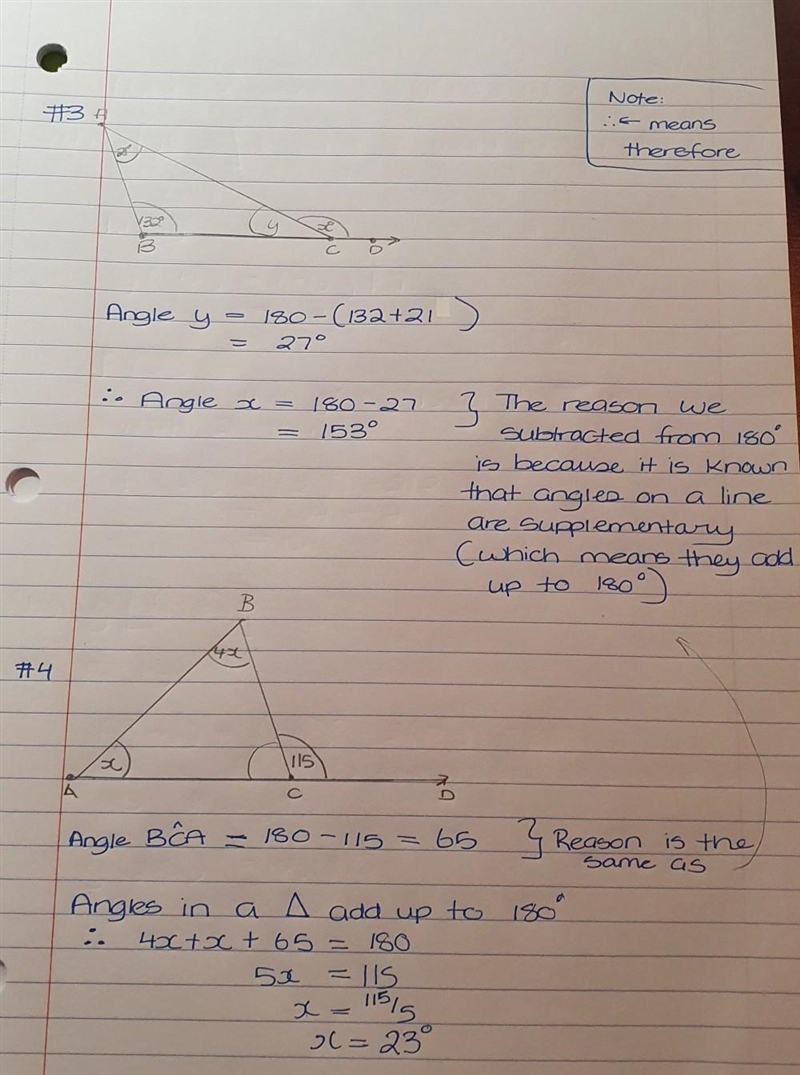 #3 A
Note:
∴ ← means
therefore
132°
y
x°
B
C
D
Angle y = 180 - (132+21)
= 27°
∴ Angle x = 180 - 27 } The reason we
= 153° subtracted from 180°
is because it is known
that angles on a line
are supplementary
(which means they add
up to 180°)
B
#4
4x
x
115
A
C
D
Angle BĈA = 180 - 115 = 65 } Reason is the
same as
Angles in a Δ add up to 180°
∴ 4x + x + 65 = 180
5x = 115
x = 115/5
x = 23°